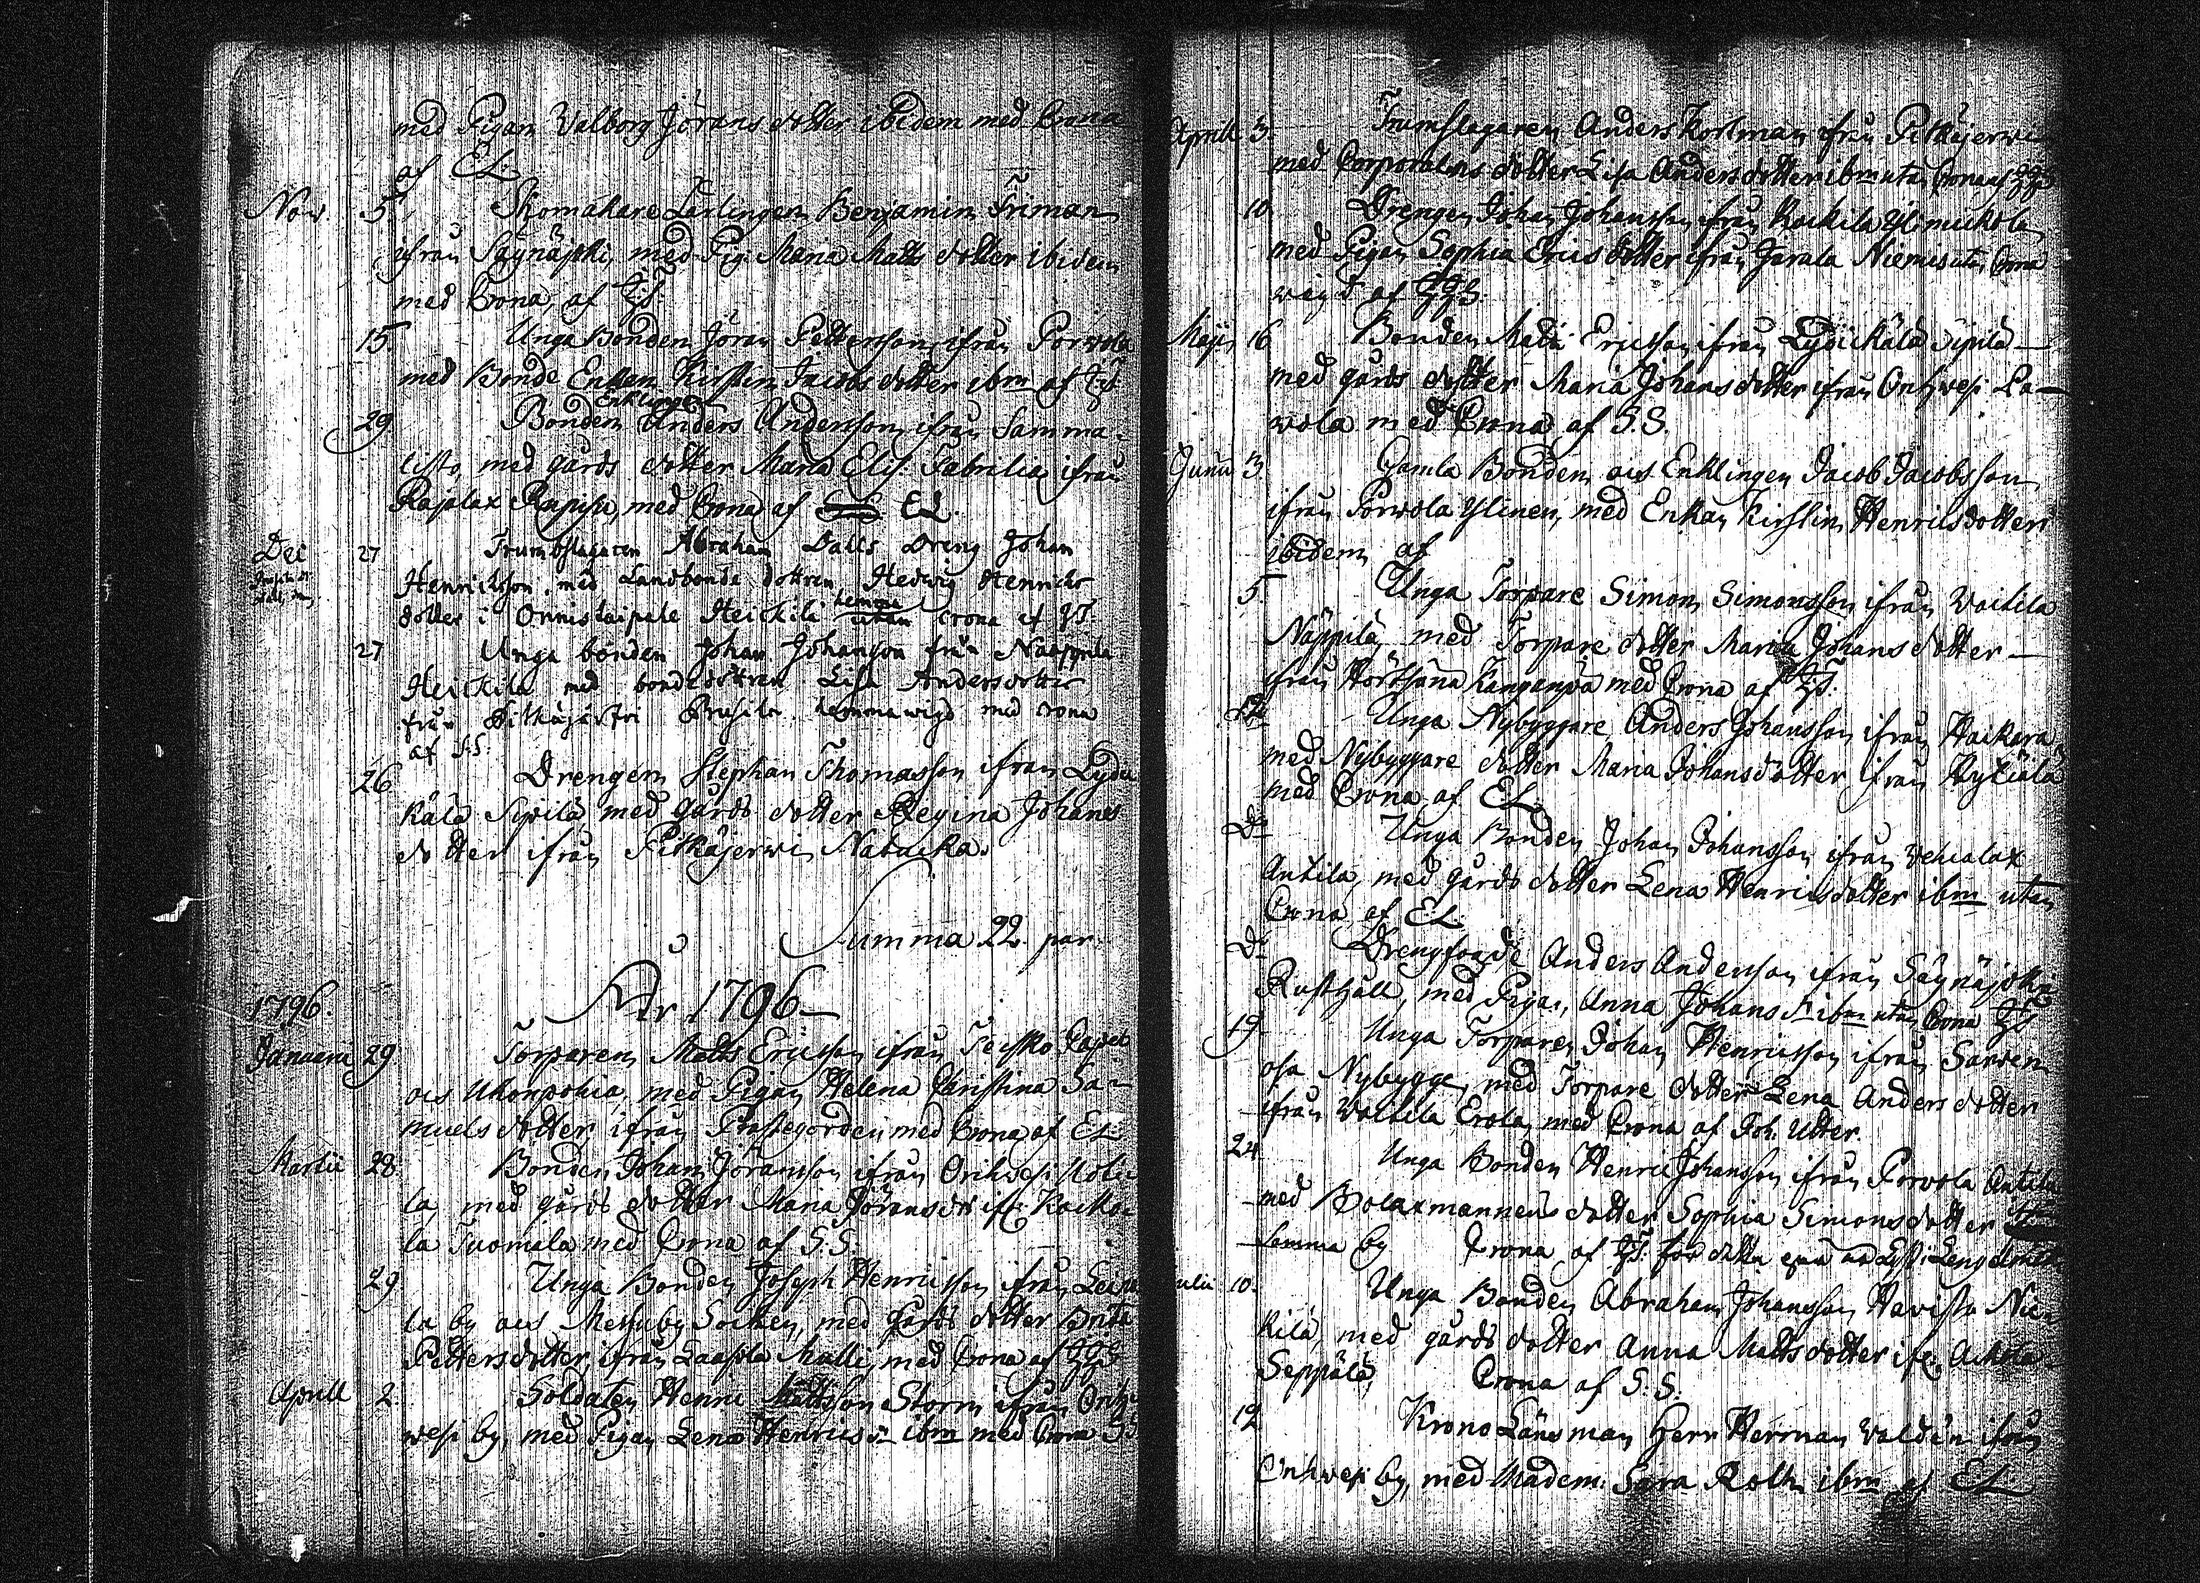 med Pigan Valborg Jörans dotter ibidem med Crona
af EL.
Nov. 5. Skomakare Lärlingen Benjamin Friman
ifrån Säynäjoki, med Pig. Maria Matts dotter ibidem
med Crona, af
15. Unga Bonden Jöran Pettersson ifrån Porvola
med Bonde Enkan Kirstin Jacobs dotter ibm af
Enklingen
29 Bonden Anders Andersson ifrån Samma-
listo, med gårds dotter Maria Elis. Fabrilia ifrån
Rajalax, med Crona af EL.
Dec 27 Trumbslagaren Abraham Dalls Dreng Johan
Henricksson. med Landbonde dottren Hedwig Henrichs
hemma
dotter i Onnistaipale Heickilä utan crona af
27 Unga bonden Johan Johansson från Naappila
Heickilä med bondedottren Lisa Andersdotter
från Pitkäjärvi hemma wigd med crona
af S.S.
26. Drengen Stephan Thomasson ifrån Lydi
kälä Sipilä, med gårds dotter Regina Johans
dotter ifrån Pitkäjerwi
Summa 22. par
1796. År 1796
Januarii 29 Torparen Matts Ericsson ifrån Teisko Capel
och Uhonpohia, med Pigan Helena Christina Sa-
muels dotter, ifrån Prästegården med Crona af EL
Martii 28. Bonden Johan Jöransson ifrån Orihwesi Uoli-
la, med gårds dotter Maria Jöransdr ifr.
la Tuomala med Crona af S.S.
29. Unga Bonden Joseph Henricsson ifrån
la by och Messuby Socken, med Gårds dotter Brita
Petters dotter, ifrån Laasola Malli, med Crona af
Aprill 2. Soldaten Henric Mattsson Storm ifrån Orih-
wesi by, med Pigan Lena Henrics dr ibm med Crona
Aprill 3. Trumslagaren Anders Kortman ifrån Pitkäjerwi
med Corporalens dotter Lisa Anders dotter ibm utan Crona af
10 Drengen Johan Johansson ifrån
med Pigan Sophia Erics dotter ifrån Jarala Niemis utan Crona
wigd af
Maji 16 Bonden Matts Ericsson ifrån Lydickälä Sipilä
med gårds dotter Maria Johans dotter ifrån Orihwesi La-
wola med Crona af S.S.
Junii 3 Gamla Bonden och Enklingen Jacob Jacobsson
ifrån Porwola Ylinen, med Enkan Kirstin Henricsdotter
ibidem af
5. Unga Torpare Simon Simonsson ifrån Voitila
Näppilä, med Torpare dotter Maria Johans dotter
ifrån Hörtsänä Kanganpä med Crona af
12 Unga Nybyggare Anders Johansson ifrån Haikara
med Nybyggare dotter Maria Johansdotter ifrån Hytiälä
med Crona af EL
Do Unga Bonden Johan Johansson ifrån Wehcalax
Antila, med gårds dotter Lena Henricsdotter ibm utan
Crona af EL
Do Anders Andersson ifrån Säynäjoki
Rusthåll, med Pigan, Anna Johans dr ibm utan Crona
19. Unga Torparen Johan Henricsson ifrån Sarwen
osa Nybygge, med Torpare dotter Lena Anders dotter
ifrån Voitila Erola, med Crona af Joh. Utter.
24. Unga Bonden Henric Johansson ifrån Porvola Antila
med Bolaxmannens dotter Sophia Simons dotter
by Crona af
ulii 10. Unga Bonden Abraham Johansson Havisto
kilä, med gårds dotter Anna Matts dotter ifr.
Seppälä, Crona af S.S.
12 Krono Länsman Herr Herman Waldén ifrån
Orihwesi by, med Madem. Sara Roth ibm af EL